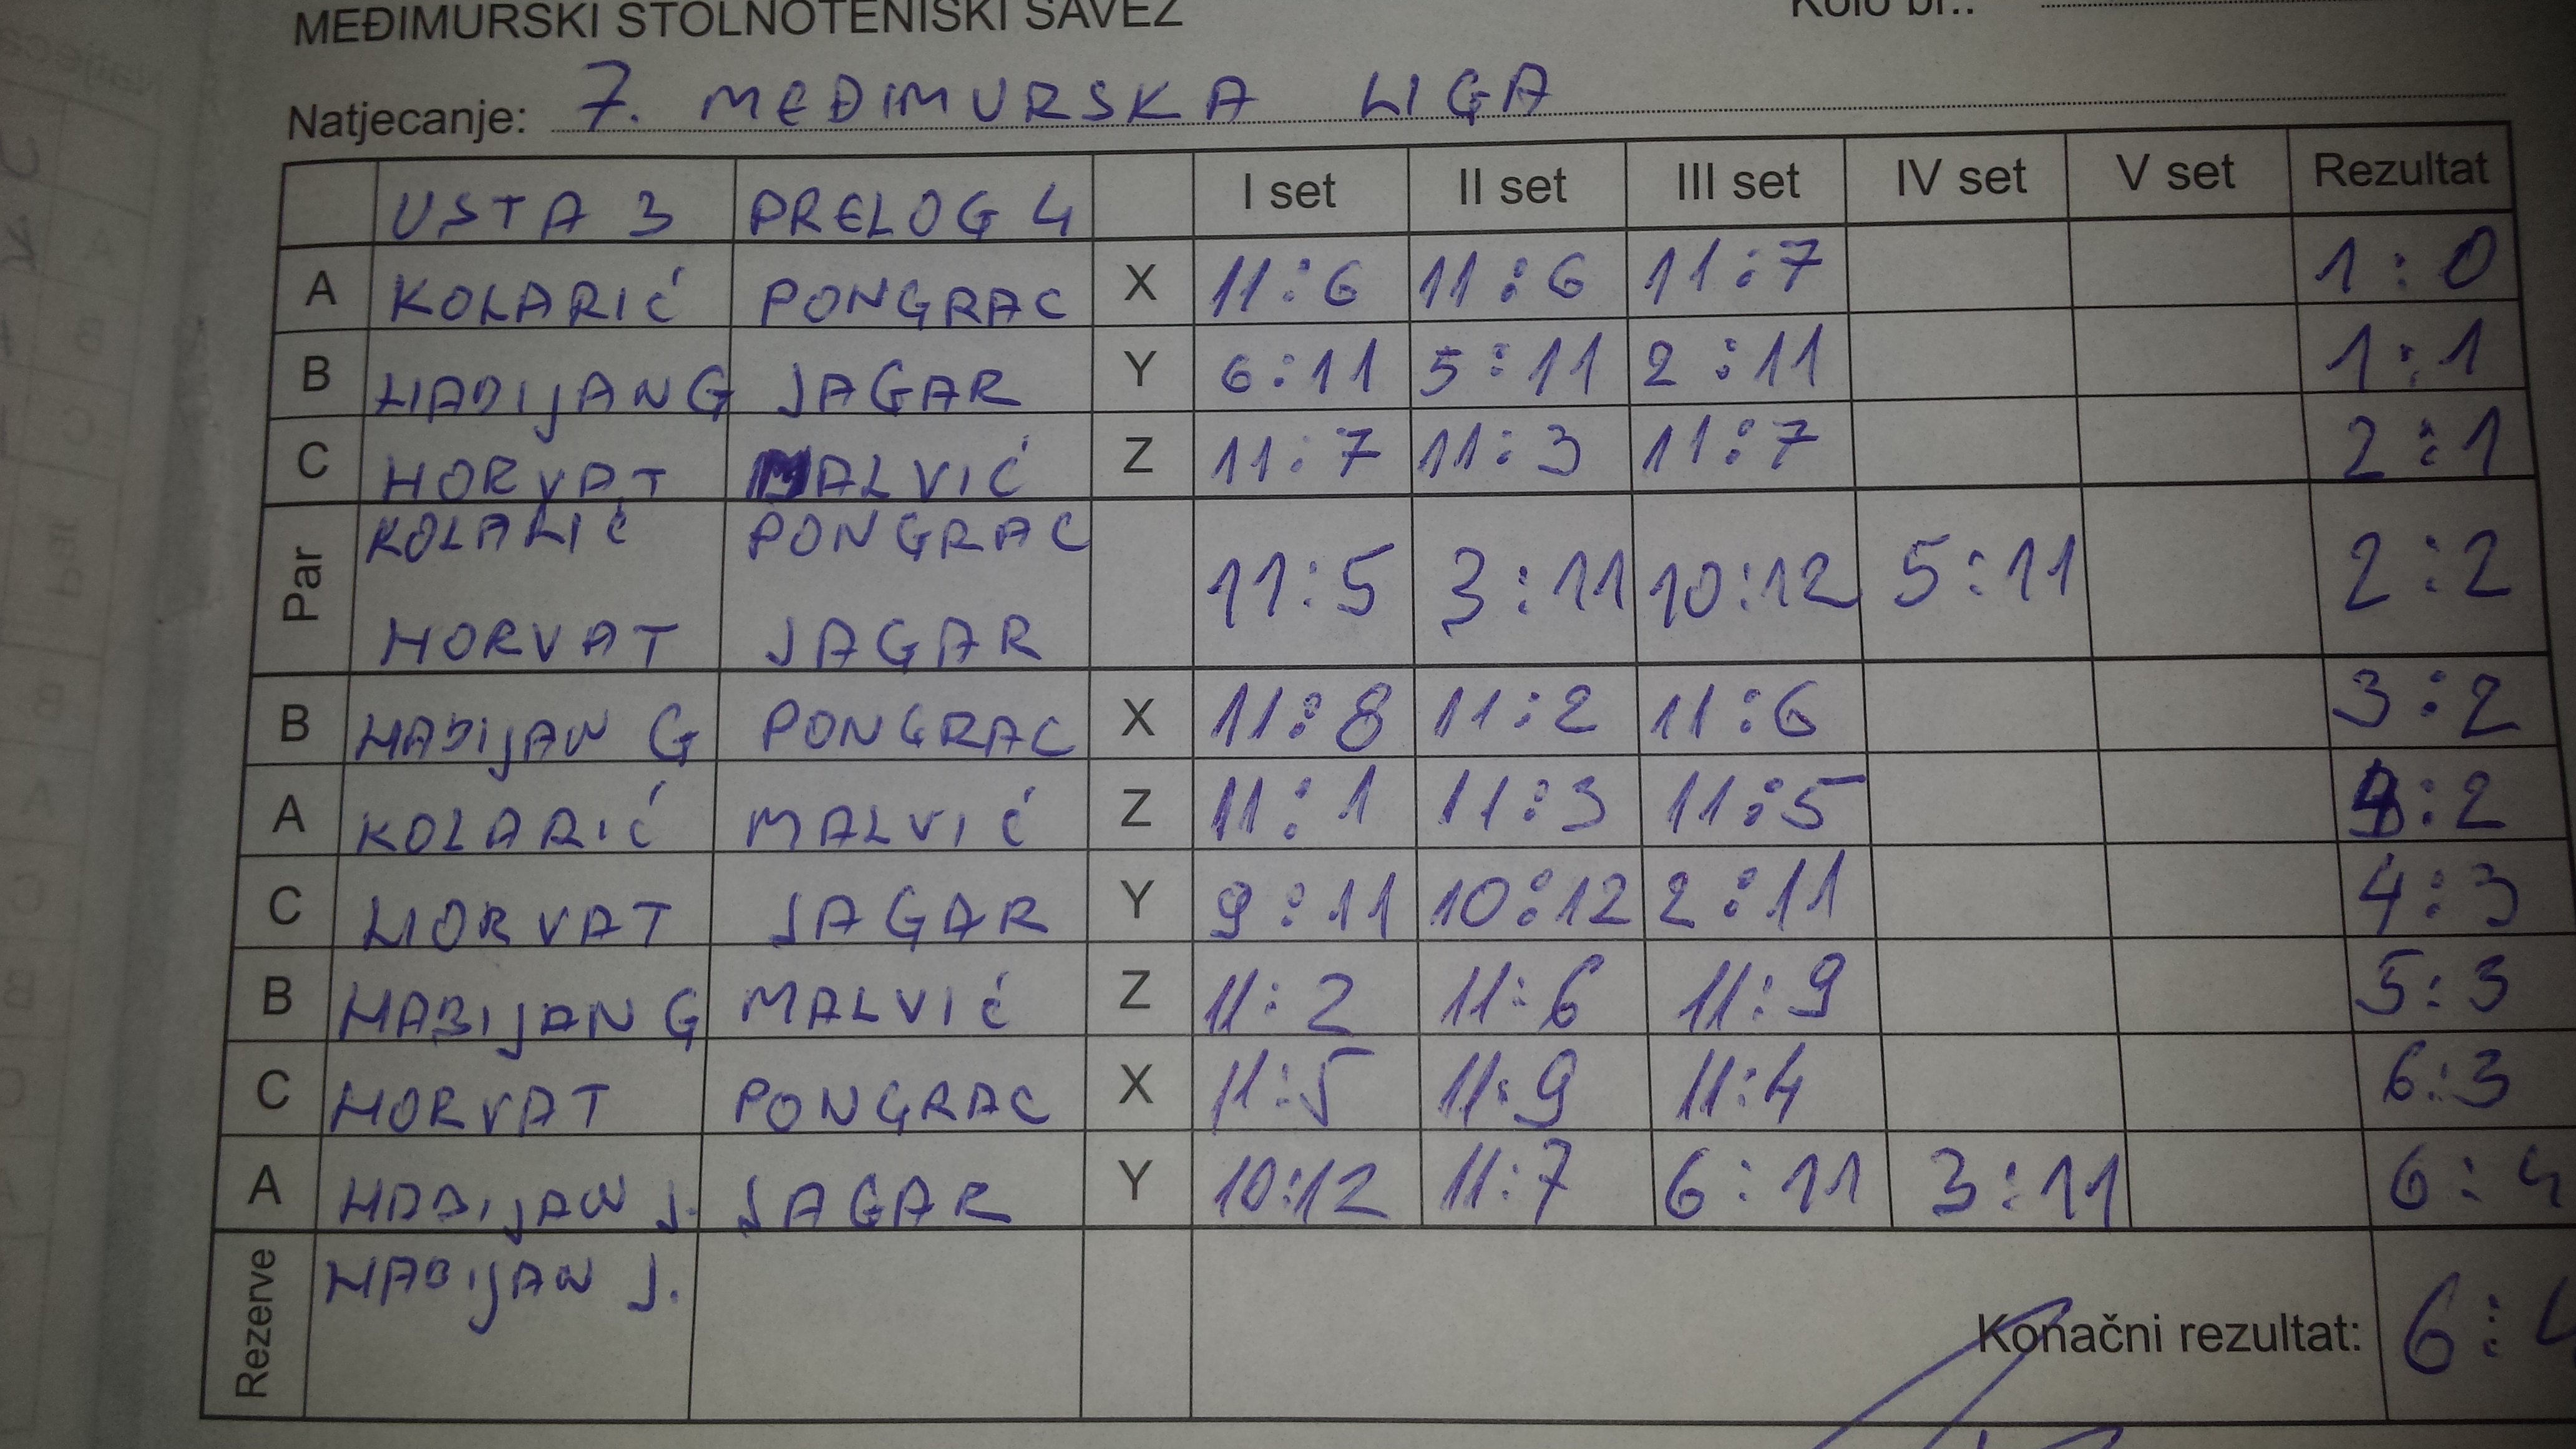 MEĐIMURSKI STOLNOTENISKI SAVEZ Kolo br.:
Natjecanje: 7. MEĐIMURSKA LIGA
USTA 3 PRELOG 4 I set II set III set IV set V set Rezultat
A KOLARIĆ PONGRAC X 11:6 11:6 11:7 1:0
B HABIJAN G JAGAR Y 6:11 5:11 2:11 1:1
C HORVAT MALVIĆ Z 11:7 11:3 11:7 2:1
Par KOLARIĆ PONGRAC
HORVAT JAGAR 11:5 3:11 10:12 5:11 2:2
B HABIJAN G PONGRAC X 11:8 11:2 11:6 3:2
A KOLARIĆ MALVIĆ Z 11:1 11:3 11:5 4:2
C HORVAT JAGAR Y 9:11 10:12 2:11 4:3
B HABIJAN G MALVIĆ Z 11:2 11:6 11:9 5:3
C HORVAT PONGRAC X 11:5 11:9 11:4 6:3
A HABIJAN J. JAGAR Y 10:12 11:7 6:11 3:11 6:4
Rezerve HABIJAN J.
Konačni rezultat: 6:4